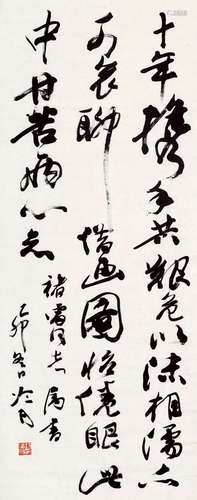 十年携手共艰危以沫相濡亦
可哀聊借画图怡倦眼此
中甘苦两心知
褚雷同志属书
乙卯冬日